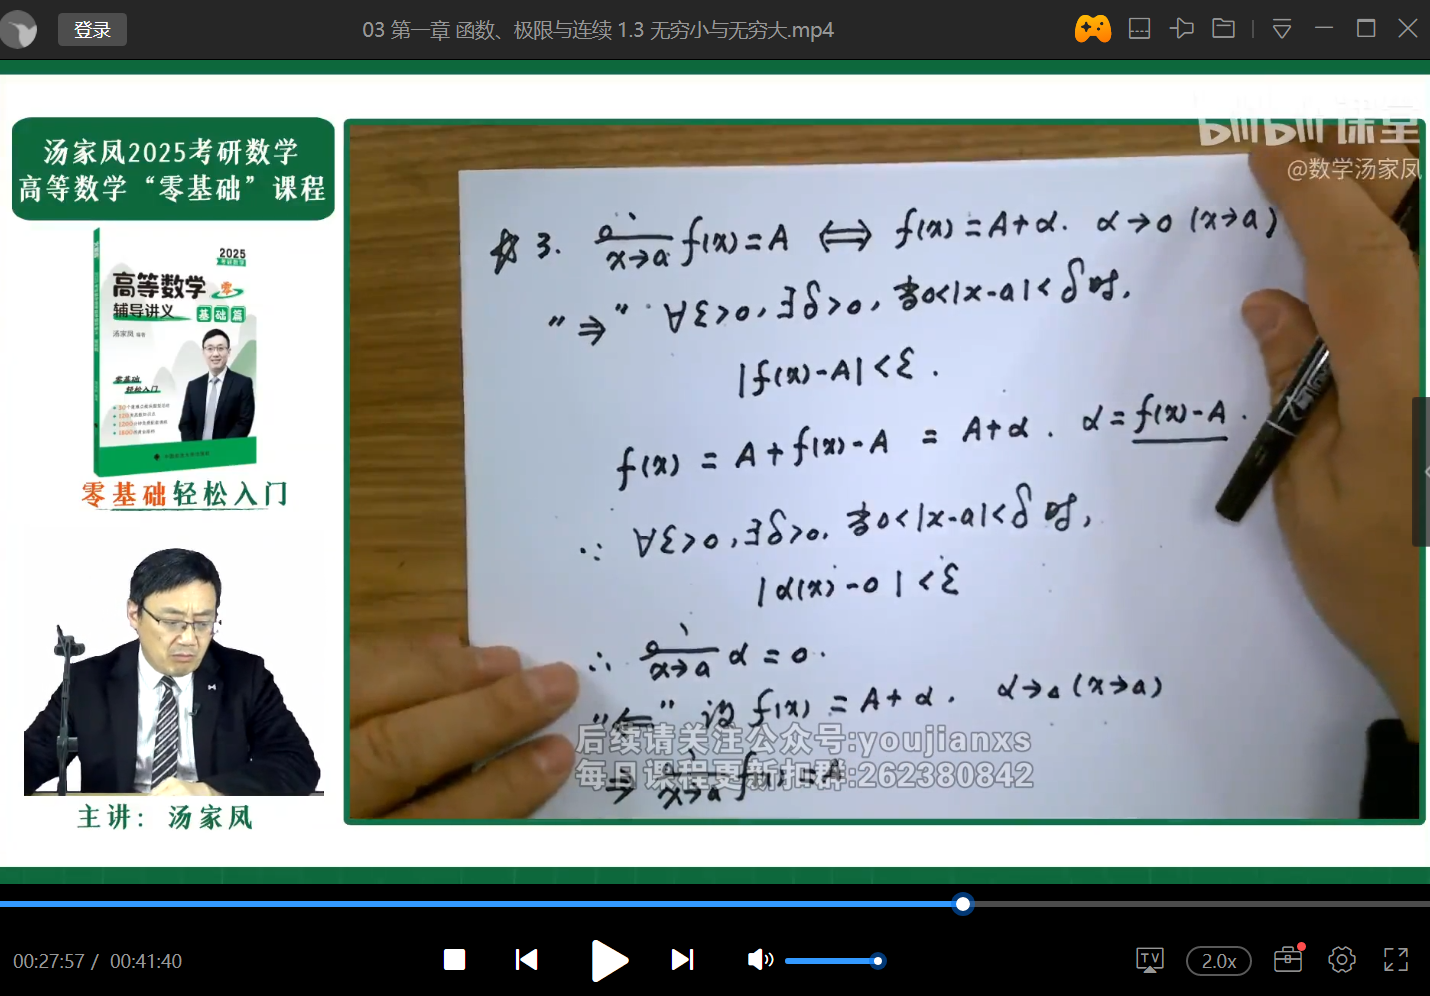 登录
03 第一章 函数、极限与连续 1.3 无穷小与无穷大.mp4
汤家凤2025考研数学
高等数学“零基础”课程
2025
高等数学 零
辅导讲义 基础篇
汤家凤
零基础
轻松入门
零基础轻松入门
主讲：汤家凤
bilibili课堂
@数学汤家凤
3. lim x→a f(x)=A ⟺ f(x)=A+α. α→0 (x→a)
"⇒" ∀ε>0,∃δ>0,当0<|x-a|<δ时,
|f(x)-A|<ε.
f(x) = A+f(x)-A = A+α. α=f(x)-A.
∴ ∀ε>0,∃δ>0.当0<|x-a|<δ时,
|α(x)-0|<ε
∴ lim x→a α=0.
"⇐" 设 f(x)=A+α. α→0(x→a)
⇒ lim x→a f(x)=A
后续请关注公众号:youjianxs
每日课程更新扣群:262380842
00:27:57 / 00:41:40
TV
2.0x